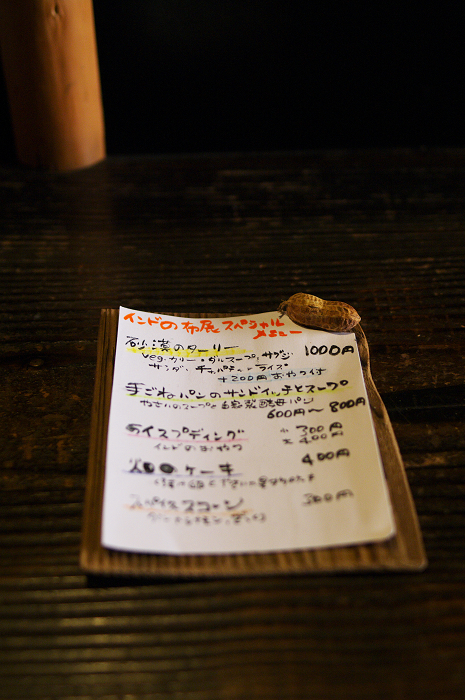 インドの布展スペシャル
メニュー
砂漠のターリー 1000円
veg.カリー・ダルスープ、サブジ
サラダ、チャパティ、ライス
+200円おやつ付
手ごねパンのサンドイッチとスープ
やさいのスープと自家製酵母パン
600円〜800円
ライスプディング 小 300円
インドのおやつ 大 400円
ケーキ 400円
スパイススコーン 300円